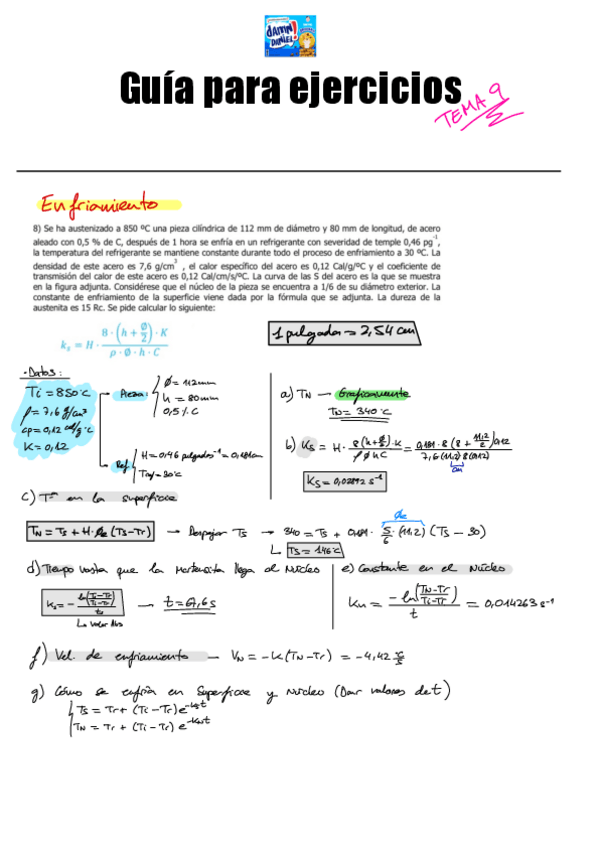 DAMN!
DANIEL!
Guía para ejercicios
TEMA 9
Enfriamiento
8) Se ha austenizado a 850 ºC una pieza cilíndrica de 112 mm de diámetro y 80 mm de longitud, de acero
aleado con 0,5 % de C, después de 1 hora se enfría en un refrigerante con severidad de temple 0,46 pg⁻¹,
la temperatura del refrigerante se mantiene constante durante todo el proceso de enfriamiento a 30 ºC. La
densidad de este acero es 7,6 g/cm³ , el calor específico del acero es 0,12 Cal/g/ºC y el coeficiente de
transmisión del calor de este acero es 0,12 Cal/cm/s/ºC. La curva de las S del acero es la que se muestra
en la figura adjunta. Considérese que el núcleo de la pieza se encuentra a 1/6 de su diámetro exterior. La
constante de enfriamiento de la superficie viene dada por la fórmula que se adjunta. La dureza de la
austenita es 15 Rc. Se pide calcular lo siguiente:
k_s = H · 8 · (h + Ø/2) · K / (ρ · Ø · h · C)
1 pulgada = 2,54 cm
· Datos:
Ti = 850ºC
ρ = 7,6 g/cm³
cp = 0,12 cal/g ºC
K = 0,12
Pieza:
Ø = 112mm
h = 80mm
0,5 % C
Ref.
H = 0,46 pulgadas⁻¹ = 0,181cm
Tref = 30ºC
a) TN — Graficamente
TN = 340 ºC
b) Ks = H · 8(h + Ø/2)·K / ρ Ø h C = 0,181 · 8 (8 + 11,2/2) 0,12 / 7,6 (11,2) 8 (0,12)
cm
Ks = 0,02892 s⁻¹
c) Tª en la superficie
TN = Ts + H · Øe (Ts - Tr) → Despejar Ts → 340 = Ts + 0,181 · 5/6 · (11,2) (Ts - 30)
Øe
Ts = 146ºC
d) Tiempo hasta que la martensita llega al Núcleo
Ks = - ln(Ts-Tr / Ti-Tr) / t → t = 67,6 s
La valor Abs
e) Constante en el Núcleo
Kn = - ln(TN-Tr / Ti-Tr) / t = 0,014263 s⁻¹
f) Vel. de enfriamiento — VN = -K (TN - Tr) = -4,42 ºC/s
g) Cómo se enfría en Superficie y Núcleo (Dar valores de t)
Ts = Tr + (Ti - Tr) e^-kst
TN = Tr + (Ti - Tr) e^-knt